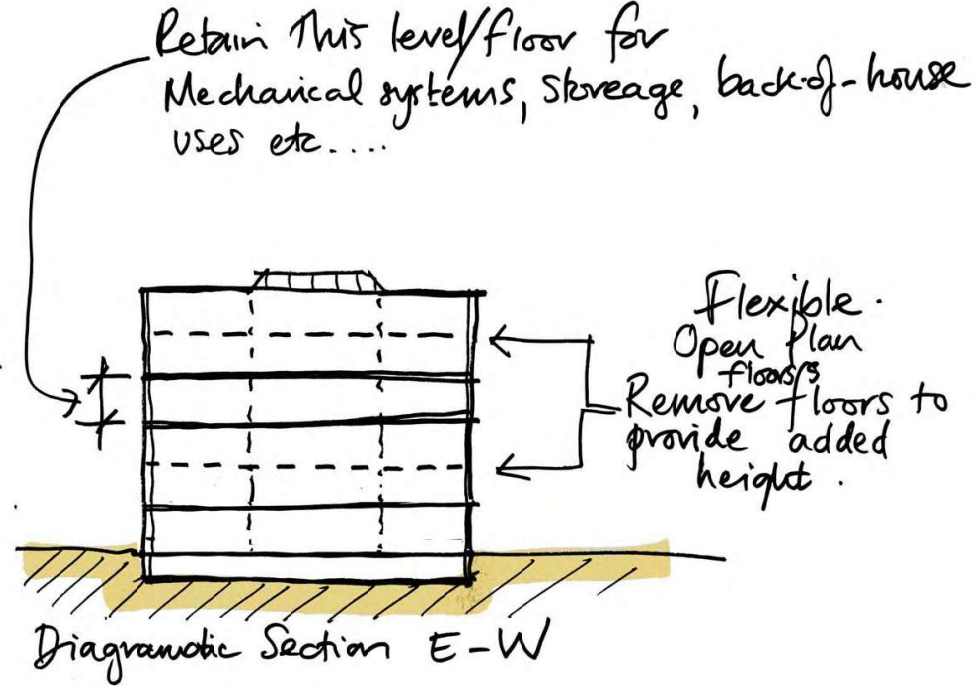 Retain This level/floor for
Mechanical systems, storeage, back-of-house
uses etc....
Flexible.
Open Plan
floors
Remove floors to
provide added
height.
Diagramatic Section E-W